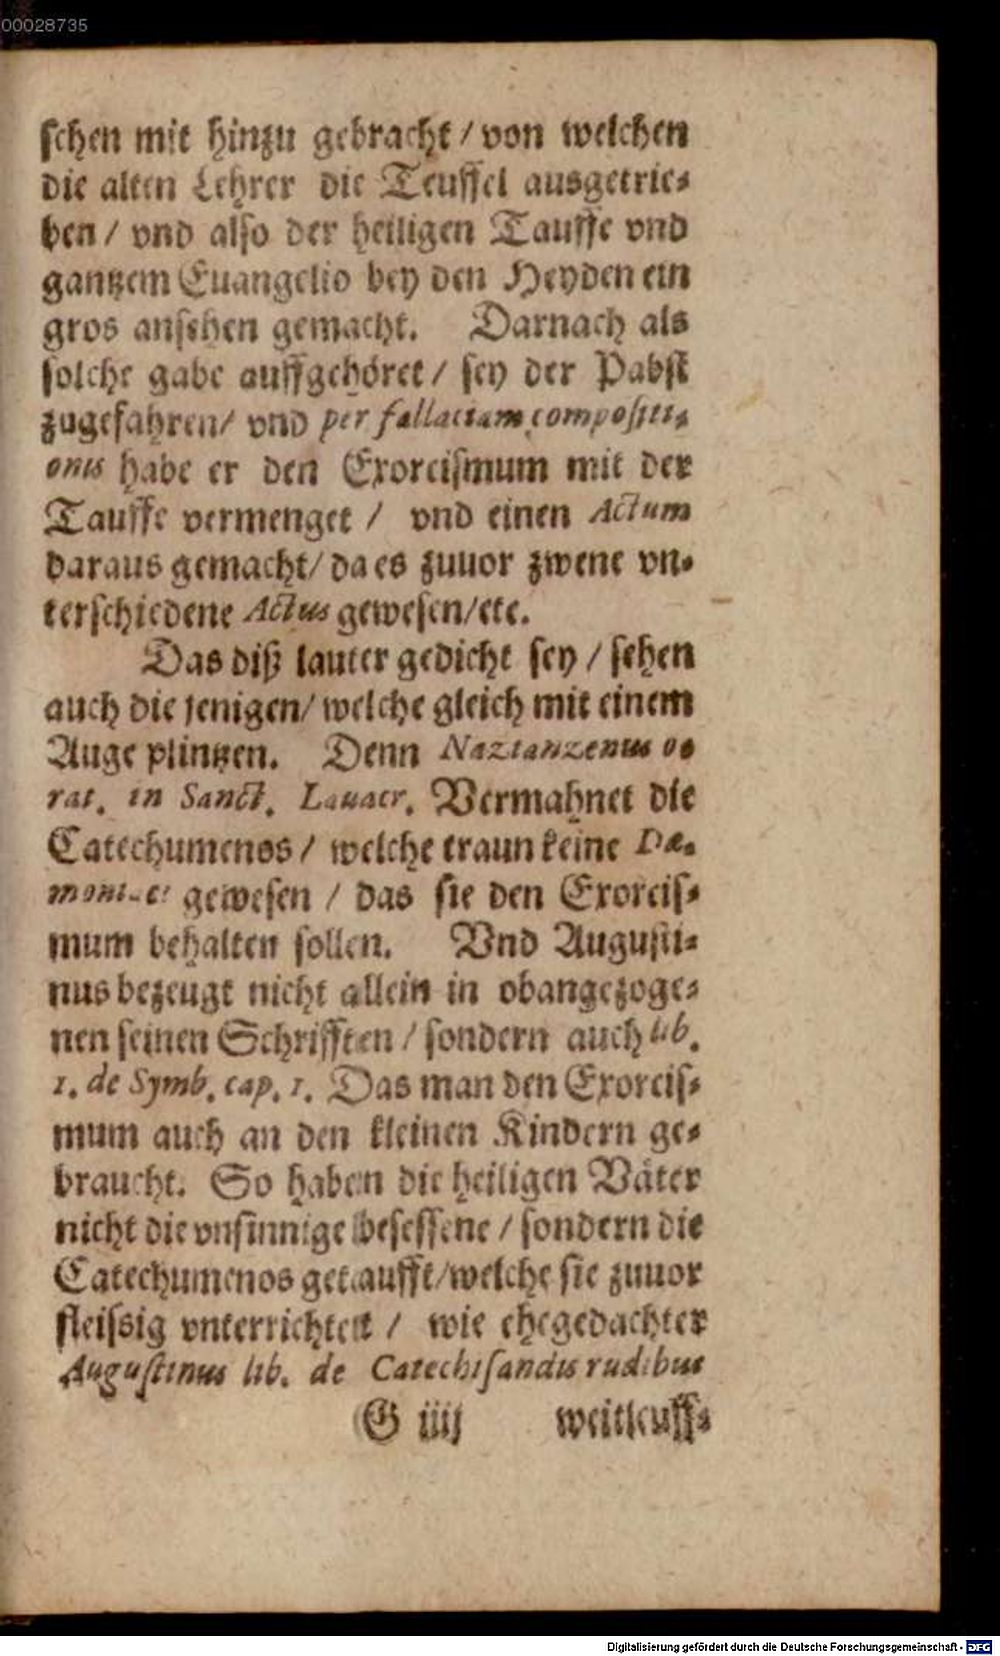 00028735
ſchen mit hinzu gebracht / von welchen
die alten Lehrer die Teuffel ausgetrie⸗
ben / vnd alſo der heiligen Tauffe vnd
gantzem Euangelio bey den Heyden ein
gros anſehen gemacht. Darnach als
ſolche gabe auffgehöret / ſey der Pabſt
zugefahren / vnd per fallaciam compoſiti⸗
onis habe er den Exorciſmum mit der
Tauffe vermenget / vnd einen Actum
daraus gemacht / da es zuuor zwene vn⸗
terſchiedene Actus geweſen / etc.
Das diß lauter gedicht ſey / ſehen
auch die jenigen / welche gleich mit einem
Auge plintzen. Denn Nazianzenus o⸗
rat. in Sanct. Lauacr. Vermahnet die
Catechumenos / welche traun keine Dæ⸗
moniaci geweſen / das ſie den Exorciſ⸗
mum behalten ſollen. Vnd Auguſti⸗
nus bezeugt nicht allein in obangezoge⸗
nen ſeinen Schrifften / ſondern auch lib.
1. de Symb. cap. 1. Das man den Exorciſ⸗
mum auch an den kleinen Kindern ge⸗
braucht. So haben die heiligen Väter
nicht die vnſinnige beſeſſene / ſondern die
Catechumenos getaufft / welche ſie zuuor
fleiſsig vnterrichtett / wie ehegedachter
Auguſtinus lib. de Catechiſandis rudibus
G iiij weitleuff⸗
Digitalisierung gefördert durch die Deutsche Forschungsgemeinschaft - DFG